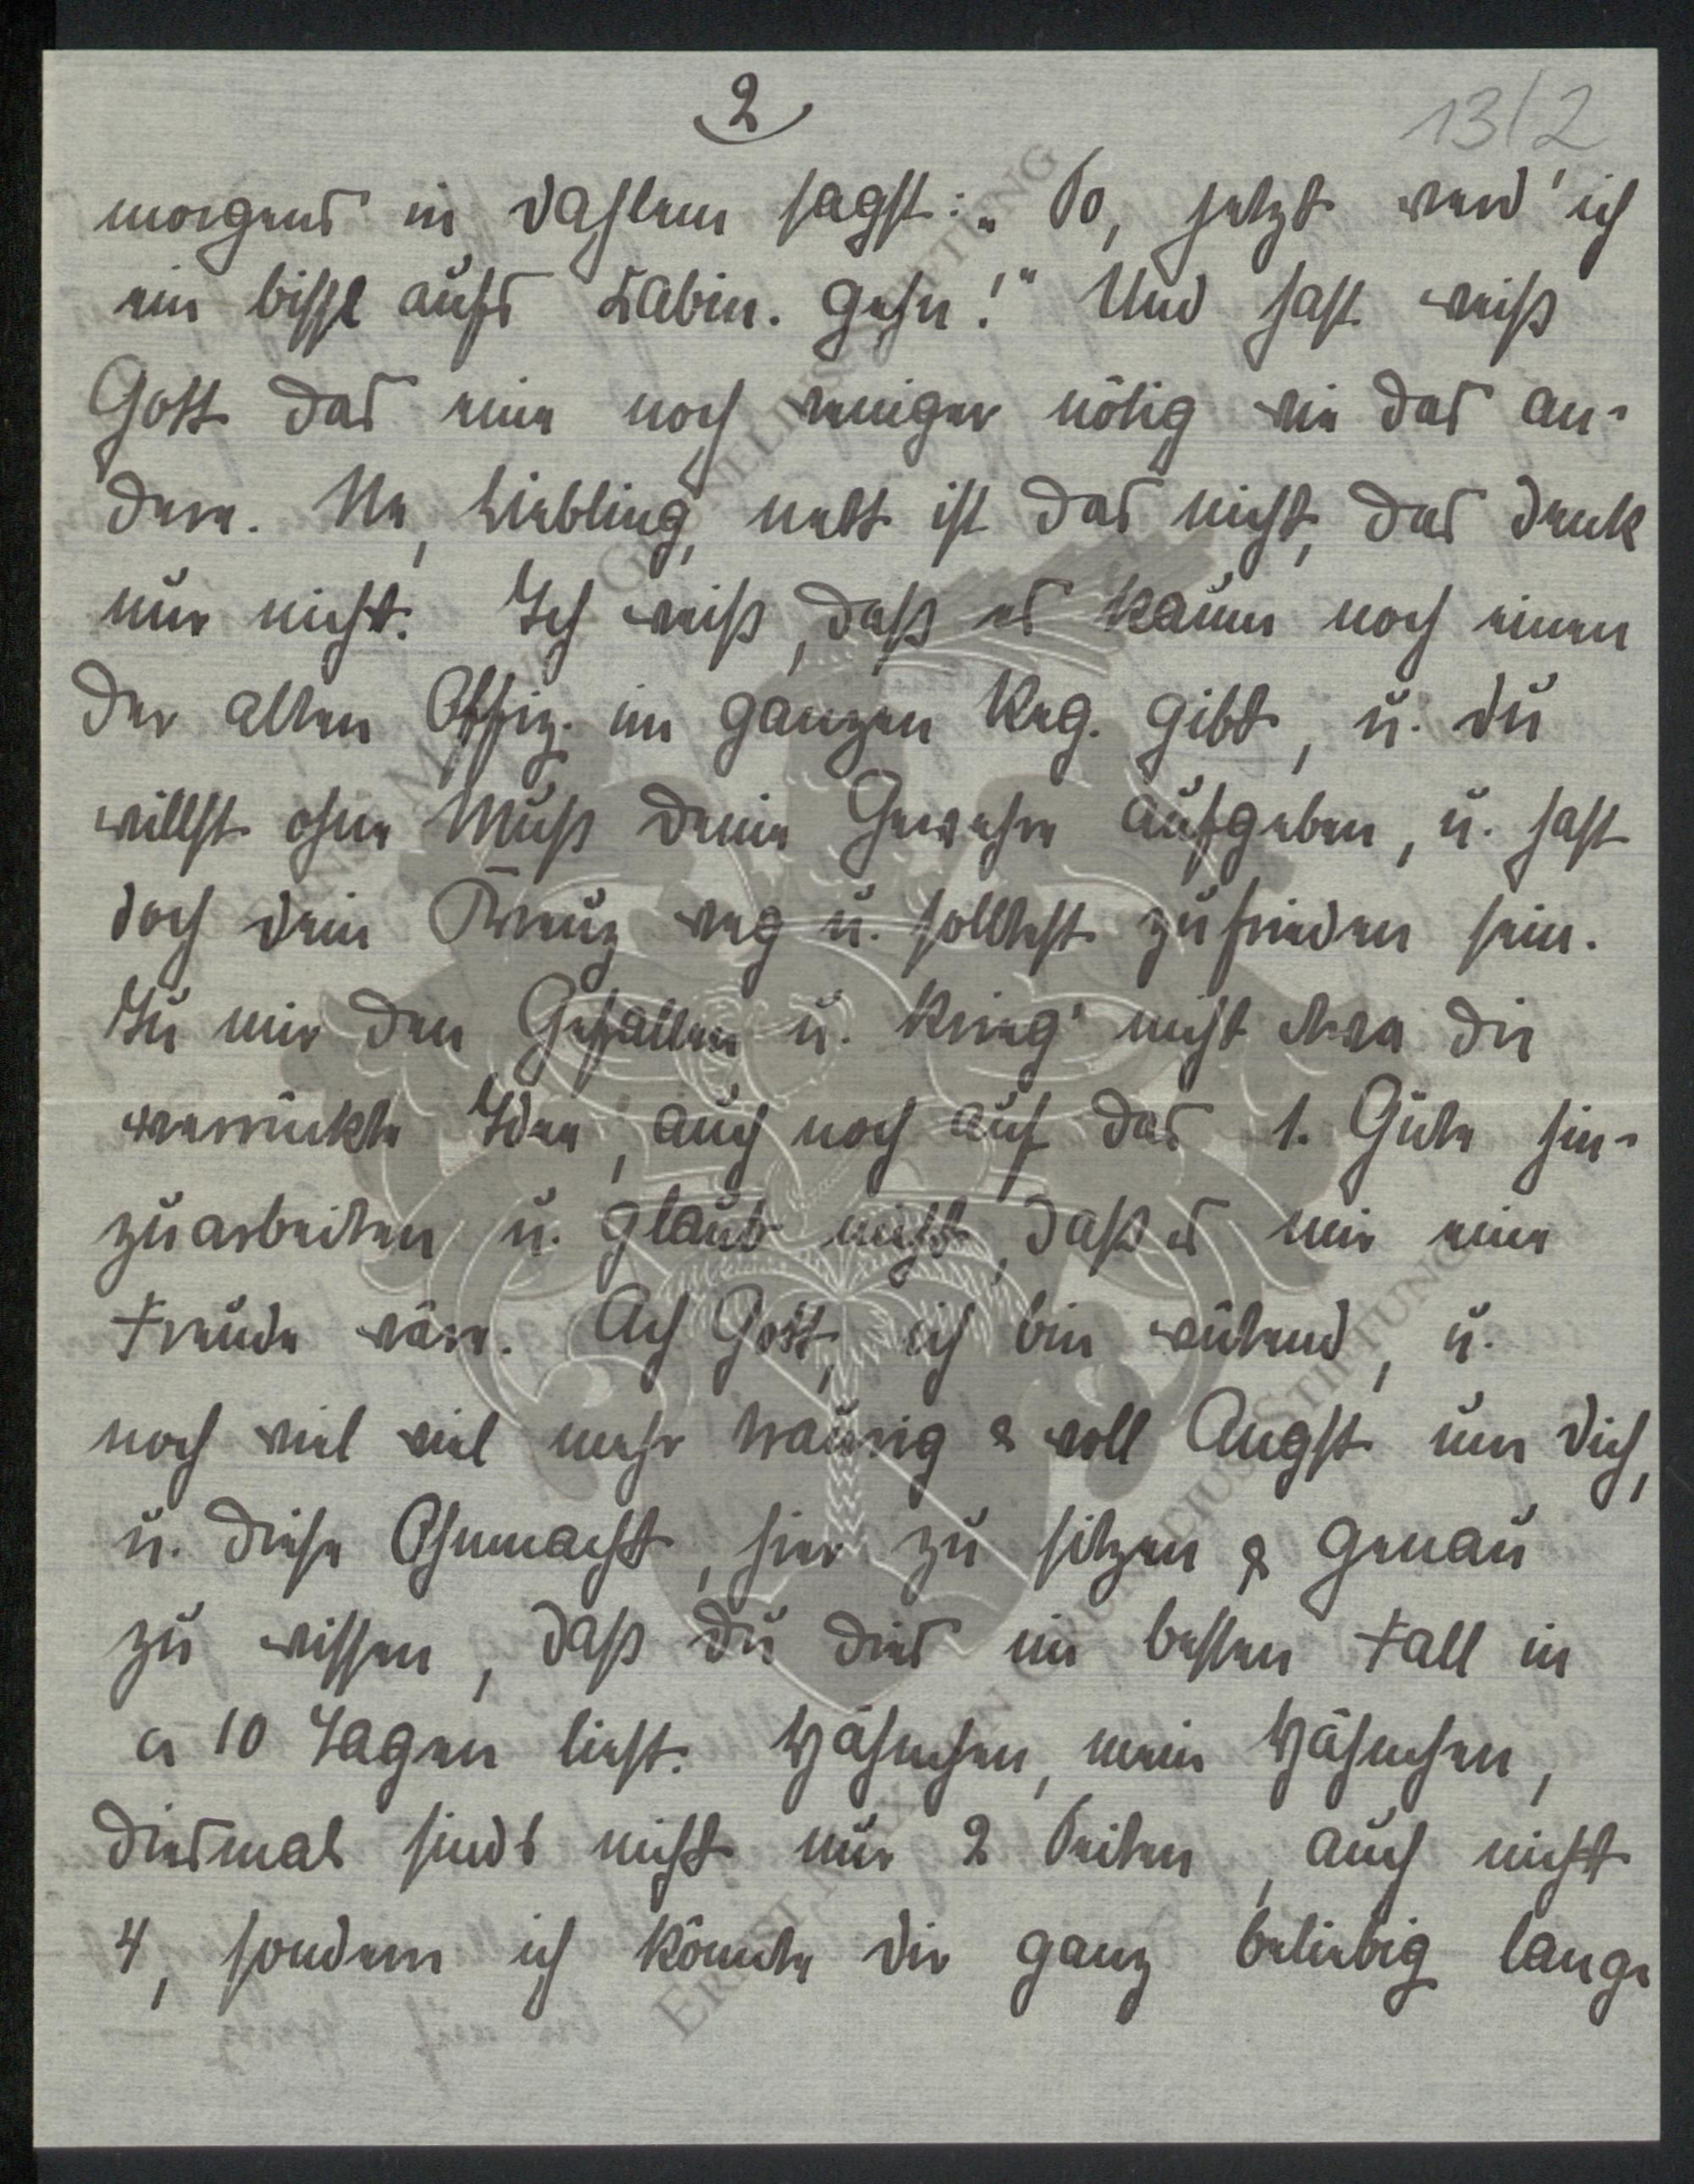 2
13/2
morgens in Dahlem sagst: „So, jetzt werd' ich
ein bissl aufs Labin. gehn!" Und hast weiß
Gott das eine noch weniger nötig wie das an-
dere. Ne, Liebling, nett ist das nicht, das denk
nur nicht. Ich weiß, daß es kaum noch einen
der alten Offiz. im ganzen Reg. gibt, u. du
willst ohne Muß deine Gewehre aufgeben, u. hast
doch dein Kreuz weg u. solltest zufrieden sein.
Tu mir den Gefallen u. krieg' nicht etwa die
verrückte Idee, auch noch auf das 1. Güte hin-
zuarbeiten u. glaub nicht, daß es mir eine
Freude wäre. Ach Gott, ich bin wütend, u.
noch viel viel mehr traurig & voll Angst um dich,
u. diese Ohnmacht, hier zu sitzen & genau
zu wissen, daß du dies im besten Fall in
a 10 Tagen liest. Hähnchen, mein Hähnchen,
diesmal sinds nicht nur 2 Seiten, auch nicht
4, sondern ich könnte dir ganz beliebig lange
ERNST MAX VON GRUNELIUS-STIFTUNG
ERNST MAX VON GRUNELIUS-STIFTUNG